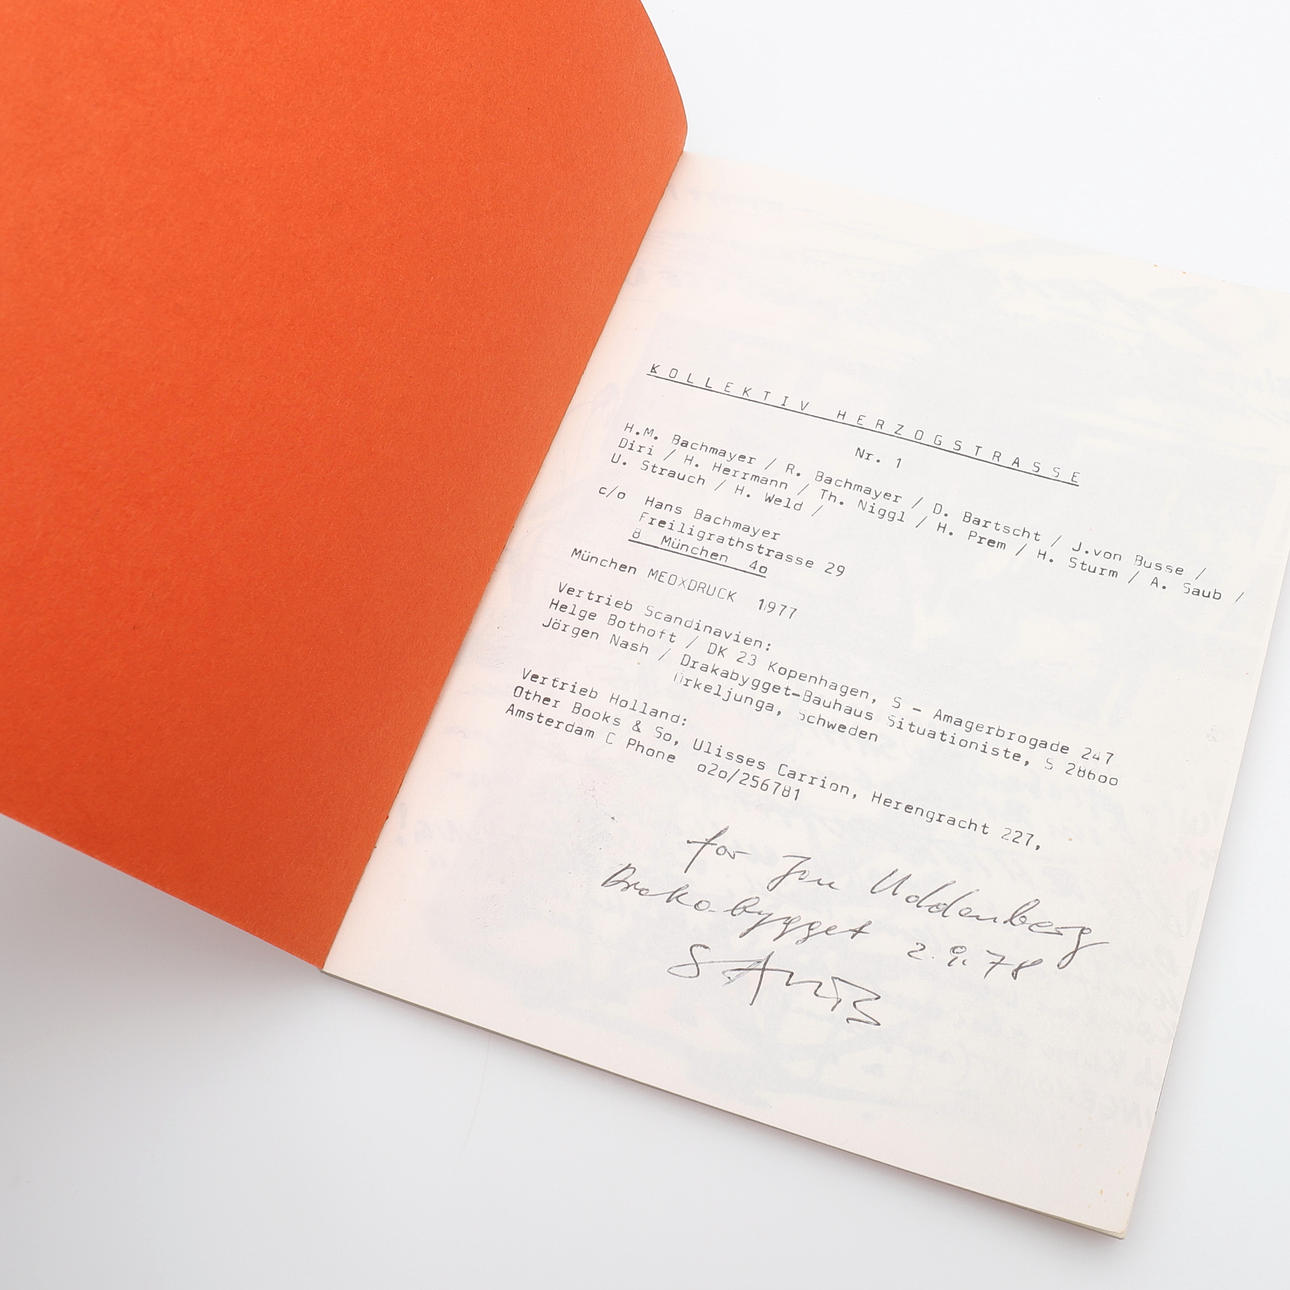 KOLLEKTIV HERZOGSTRASSE
Nr. 1
H.M. Bachmayer / R. Bachmayer / D. Bartscht / J.von Busse /
Diri / H. Herrmann / Th. Niggl / H. Prem / H. Sturm / A. Saub /
U. Strauch / H. Weld /
c/o Hans Bachmayer
Freiligrathstrasse 29
8 München 4o
München MEOXDRUCK 1977
Vertrieb Scandinavien:
Helge Bothoft / DK 23 Kopenhagen, S - Amagerbrogade 247
Jörgen Nash / Drakabygget-Bauhaus Situationiste, S 28600
Örkeljunga, Schweden
Vertrieb Holland:
Other Books & So, Ulisses Carrion, Herengracht 227,
Amsterdam C Phone o2o/256781
for Jon Uddenberg
Drakabygget 2.9.78